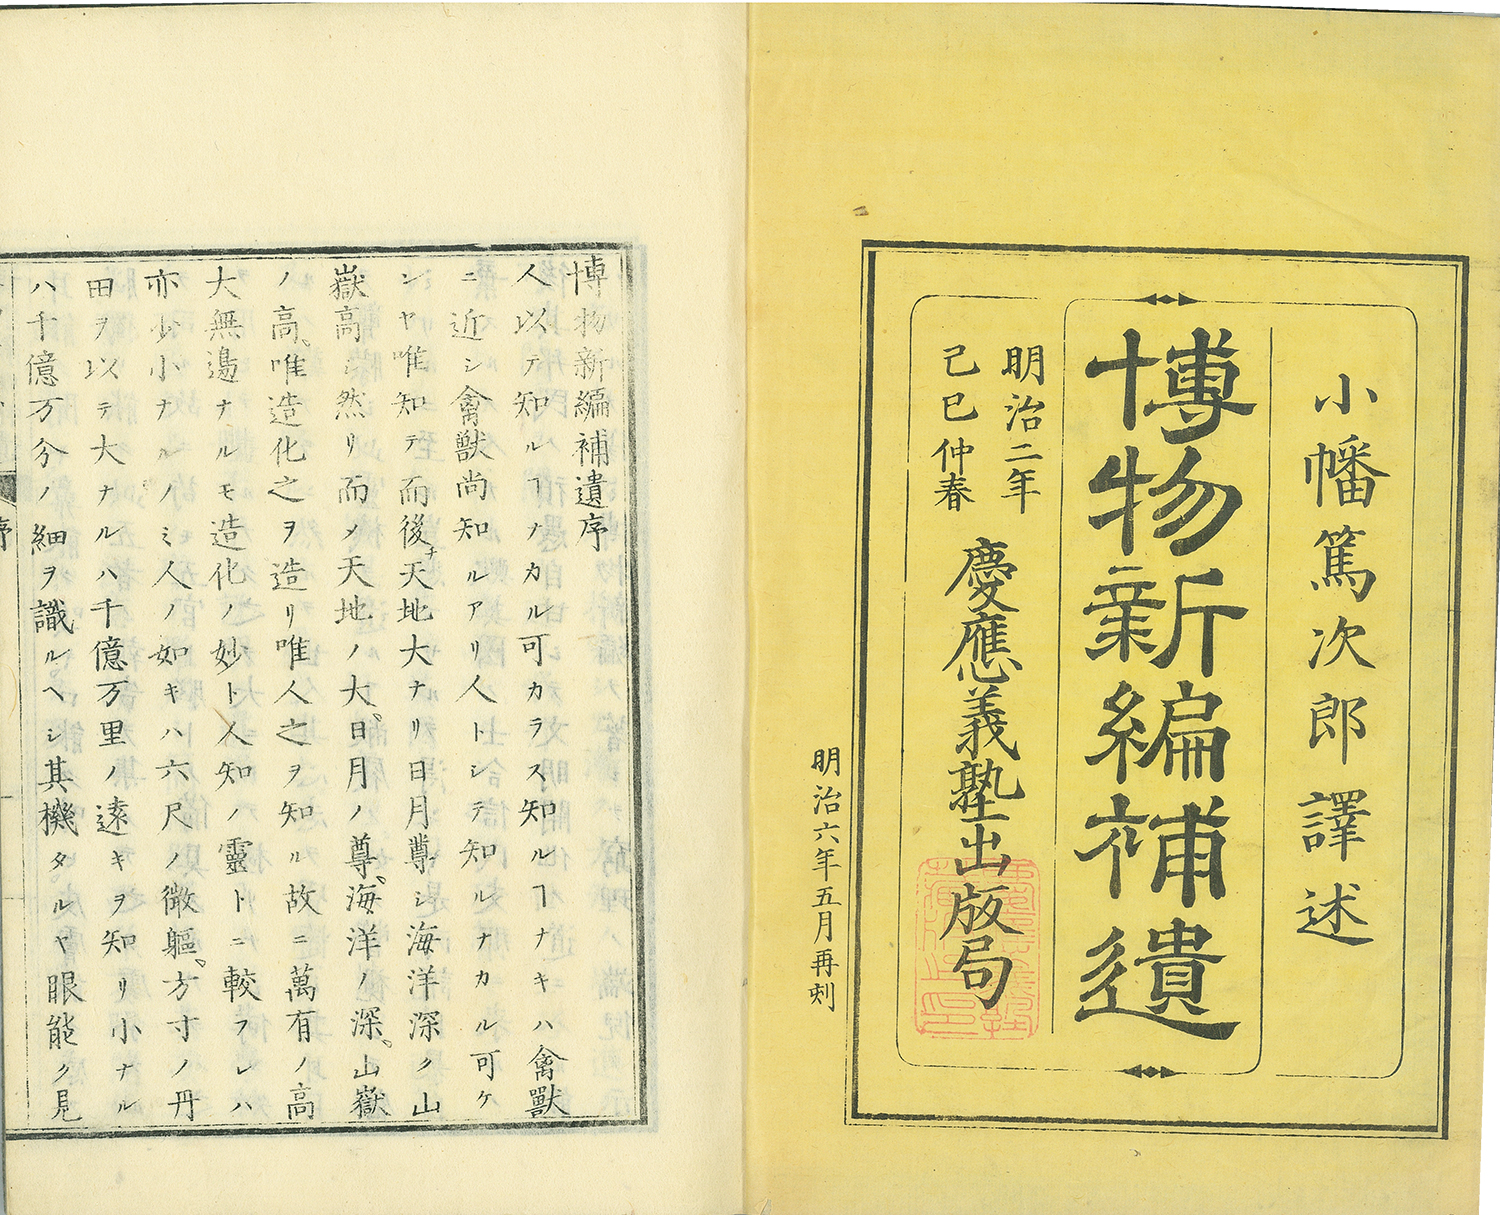 小幡篤次郎譯述
博物新編補遺
明治二年
己巳仲春
慶應義塾出版局
明治六年五月再刻
博物新編補遺序
人以テ知ルヿナカル可カラス知ルヿナキハ禽獸
ニ近シ禽獸尚知ルアリ人トシテ知ルナカル可ケ
ンヤ唯知テ而後チ天地大ナリ日月尊シ海洋深ク山
嶽高シ然リ而メ天地ノ大日月ノ尊海洋ノ深山嶽
ノ高唯造化之ヲ造リ唯人之ヲ知ル故ニ萬有ノ高
大無邊ナルモ造化ノ妙ト人知ノ靈トニ較フレハ
亦少小ナルノミ人ノ如キハ六尺ノ微軀方寸ノ丹
田ヲ以テ大ナルハ千億万里ノ遠キヲ知リ小ナル
八千億万分ノ細ヲ識ルヘシ其機タルヤ眼能ク見
序